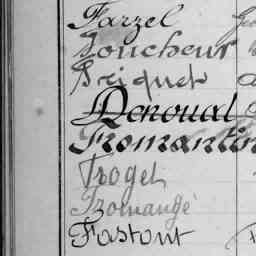 Farzel
Foucheur
Friquet
Renoual
Fromantin
Froget
Fromangé
Fastout